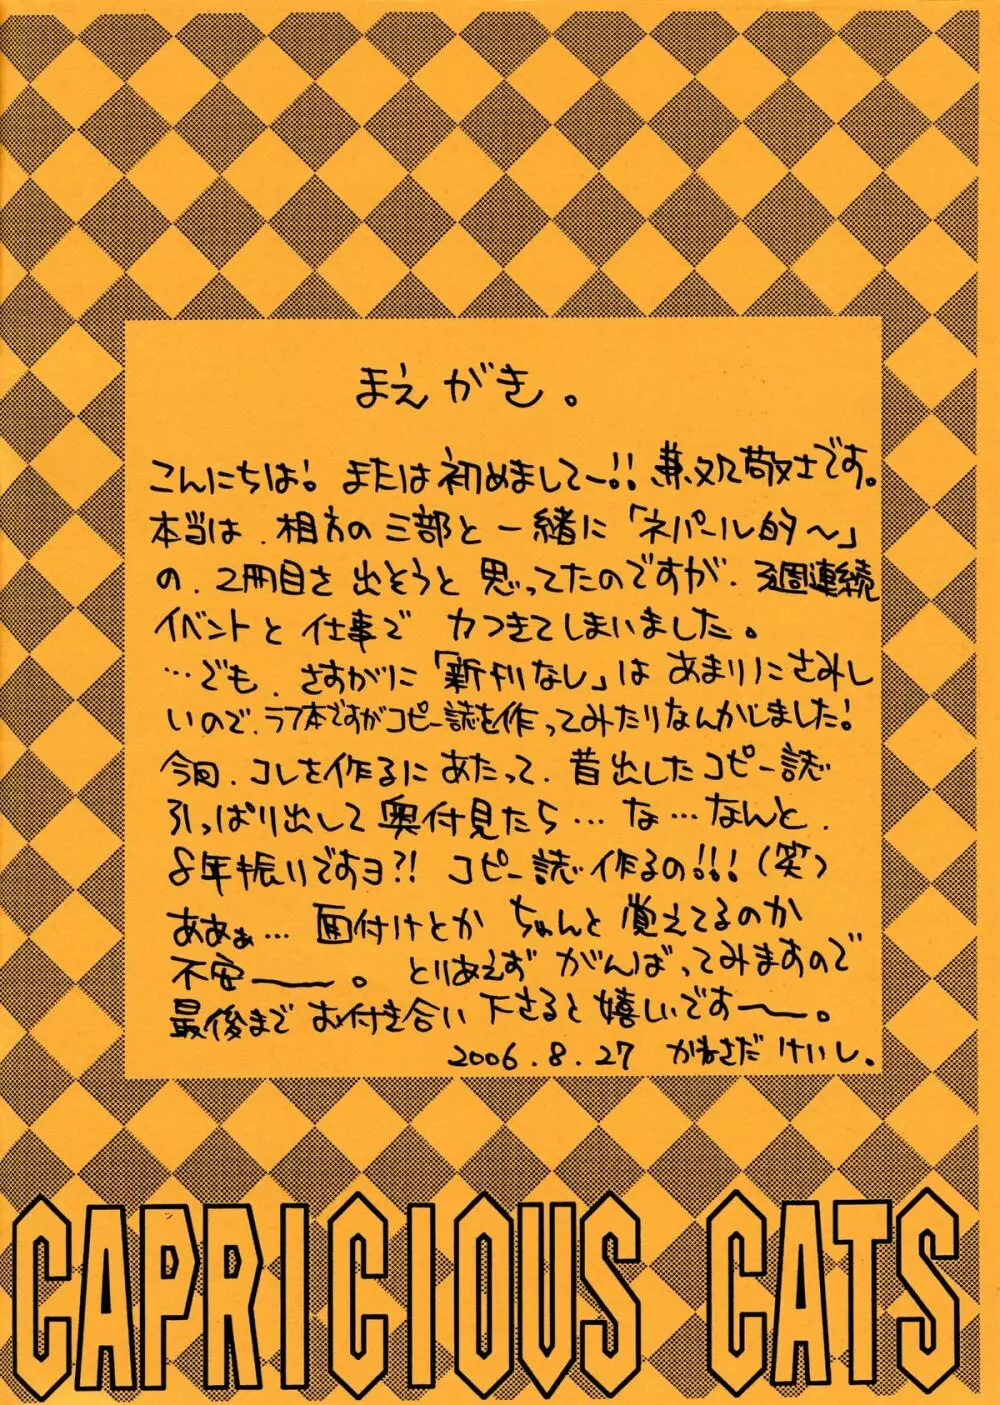 まえがき。
こんにちは! または初めまして〜!! 兼処敬士です。
本当は、相方の三部と一緒に「ネパール的〜」
の、2冊目を出そうと思ってたのですが、3週連続
イベントと仕事で力つきてしまいました。
…でも、さすがに「新刊なし」はあまりにさみし
いので、ラフ本ですがコピー誌を作ってみたりなんかしました!
今回、コレを作るにあたって、昔出したコピー誌
引っぱり出して奥付見たら…な…なんと、
8年振りですヨ?! コピー誌作るの!!! (笑)
ああぁ… 面付けとかちゃんと覚えてるのか
不安——。とりあえずがんばってみますので
最後までお付き合い下さると嬉しいです〜。
2006.8.27 かねさだけいし。
CAPRICIOUS CATS